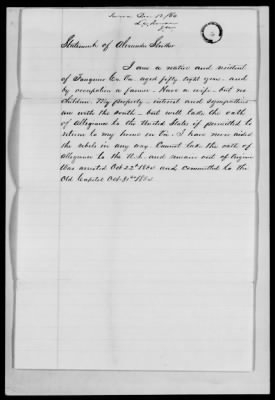 Statement of Alexander
I am a native and resident
of Fauquier Co. Va. aged fifty eight years. and
by occupation a farmer. Have a wife. but no
children. My property - interest and sympathies
are with the South. but will take the oath
of Allegiance to the United States if permitted to
return to my home in Va. I have never aided
the rebels in any way. Cannot take the oath of
Allegiance to the U.S. and remain out of Virginia
Was arrested Oct 22d 1864 and committed to the
Old Capitol Oct 31st 1864